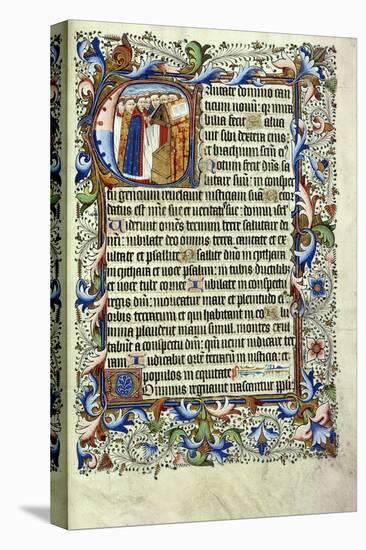 antate domino can
ticum novũ: qr mira
bilia fecit Salua
uit sibi dextera eius:
et brachium sctũ eꝰ
Notum fecit dñs sa
lutare suũ: in conspectu
gentium reuelauit iusticiam suã Recor
datus est mie sue et ueritatis sue: domui isrł
Uiderunt omẽs termini terre salutare dei
nri: iubilate deo omnis terra: cantate et ex
ultate et psallite Psallite dño in cythara
in cythara et uoce psalmi: in tubis ductilibꝰ
et uoce tube cornee Iubilate in conspectu
regis dñi: moueatur mare et plenitudo eiꝰ
orbis terrarum et qui habitant in eo
mina plaudent manu simul: montes exulta
bunt a conspectu dñi: qm̃ uenit iudicare ter
ram Iudicabit orbẽ terrarũ in iusticia: et
populos in equitate
Dominus regnauit irascantur ppli